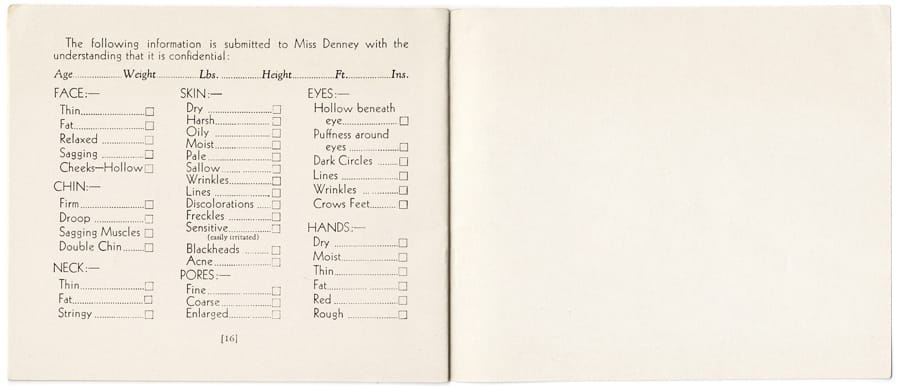 The following information is submitted to Miss Denney with the
understanding that it is confidential:
Age.................... Weight.................. Lbs. ................. Height.................. Ft. ..................Ins.
FACE:—
Thin........................□
Fat..........................□
Relaxed ..................□
Sagging ..................□
Cheeks—Hollow□
CHIN:—
Firm........................□
Droop ....................□
Sagging Muscles □
Double Chin........□
NECK:—
Thin........................□
Fat..........................□
Stringy ..................□
SKIN:—
Dry ........................□
Harsh......................□
Oily ........................□
Moist......................□
Pale ........................□
Sallow....................□
Wrinkles................□
Lines ......................□
Discolorations .....□
Freckles ................□
Sensitive................□
(easily irritated)
Blackheads ........□
Acne......................□
PORES:—
Fine........................□
Coarse....................□
Enlarged................□
EYES:—
Hollow beneath
eye......................□
Puffness around
eyes ..................□
Dark Circles .......□
Lines ......................□
Wrinkles ..............□
Crows Feet..........□
HANDS:—
Dry ........................□
Moist......................□
Thin........................□
Fat..........................□
Red ........................□
Rough ....................□
[16]